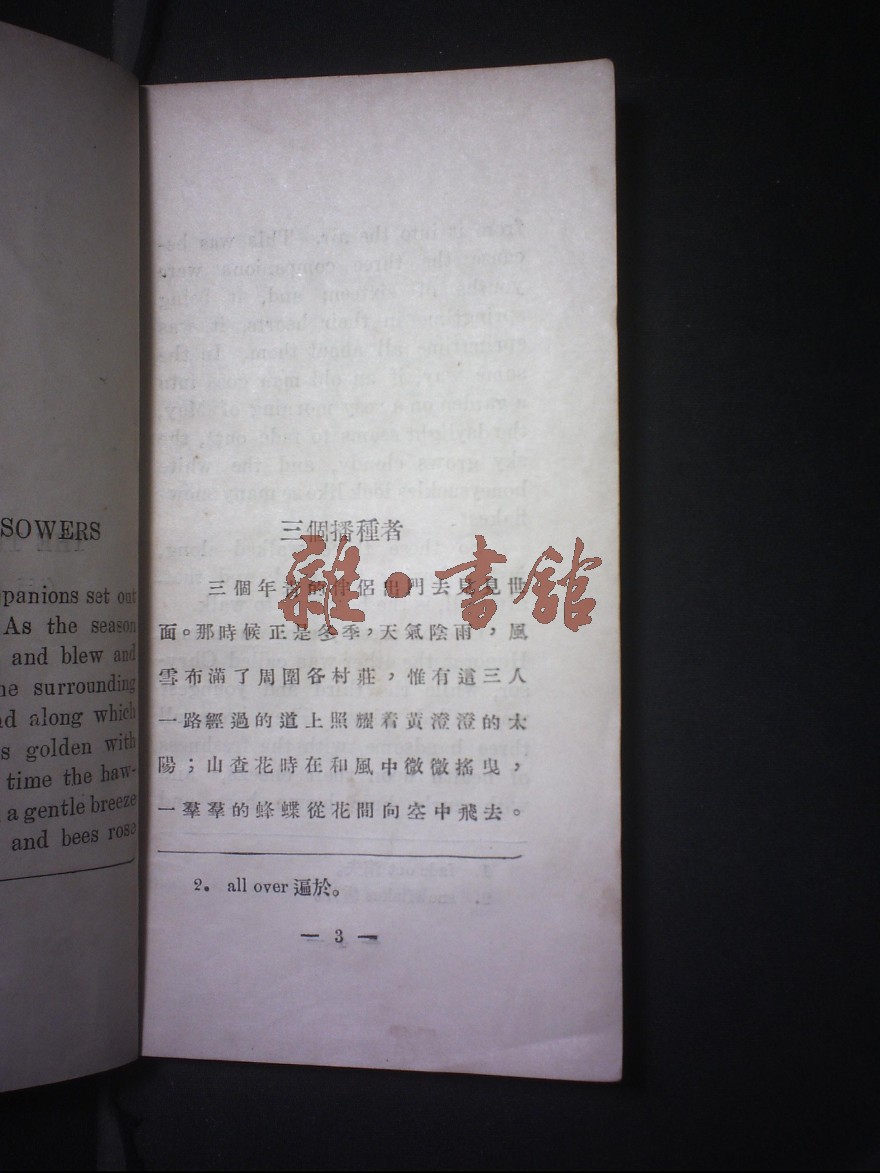 SOWERS
panions set out
As the season
and blew and
e surrounding
d along which
s golden with
time the haw-
a gentle breeze
and bees rose
三個播種者
三個年青的伴侶出門去見見世
面。那時候正是冬季，天氣陰雨，風
雪布滿了周圍各村莊，惟有這三人
一路經過的道上照耀着黃澄澄的太
陽；山查花時在和風中微微搖曳，
一羣羣的蜂蝶從花間向空中飛去。
2. all over 遍於。
— 3 —
雜·書館